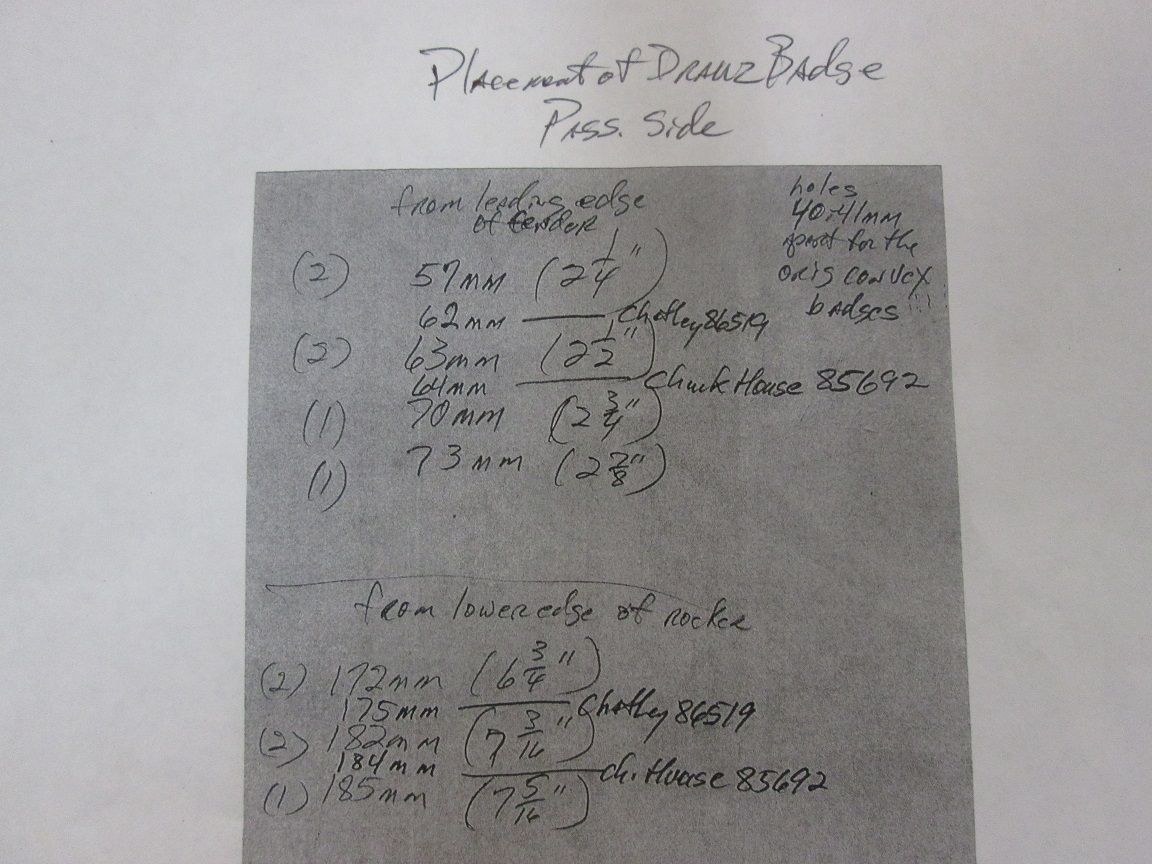 Placement of DRAUZ BAdge
PASS. Side
from leading edge
of fendor
holes
40-41mm
apart for the
orig convex
badges !!!
(2) 57mm (2 1/4")
62mm — Chatley 86519
(2) 63mm (2 1/2")
64mm — Chuck House 85692
(1) 70mm (2 3/4")
(1) 73mm (2 7/8")
from lower edge of rocker
(2) 172mm (6 3/4")
175mm — Chatley 86519
(2) 182mm (7 3/16")
184mm — Ch. House 85692
(1) 185mm (7 5/16")